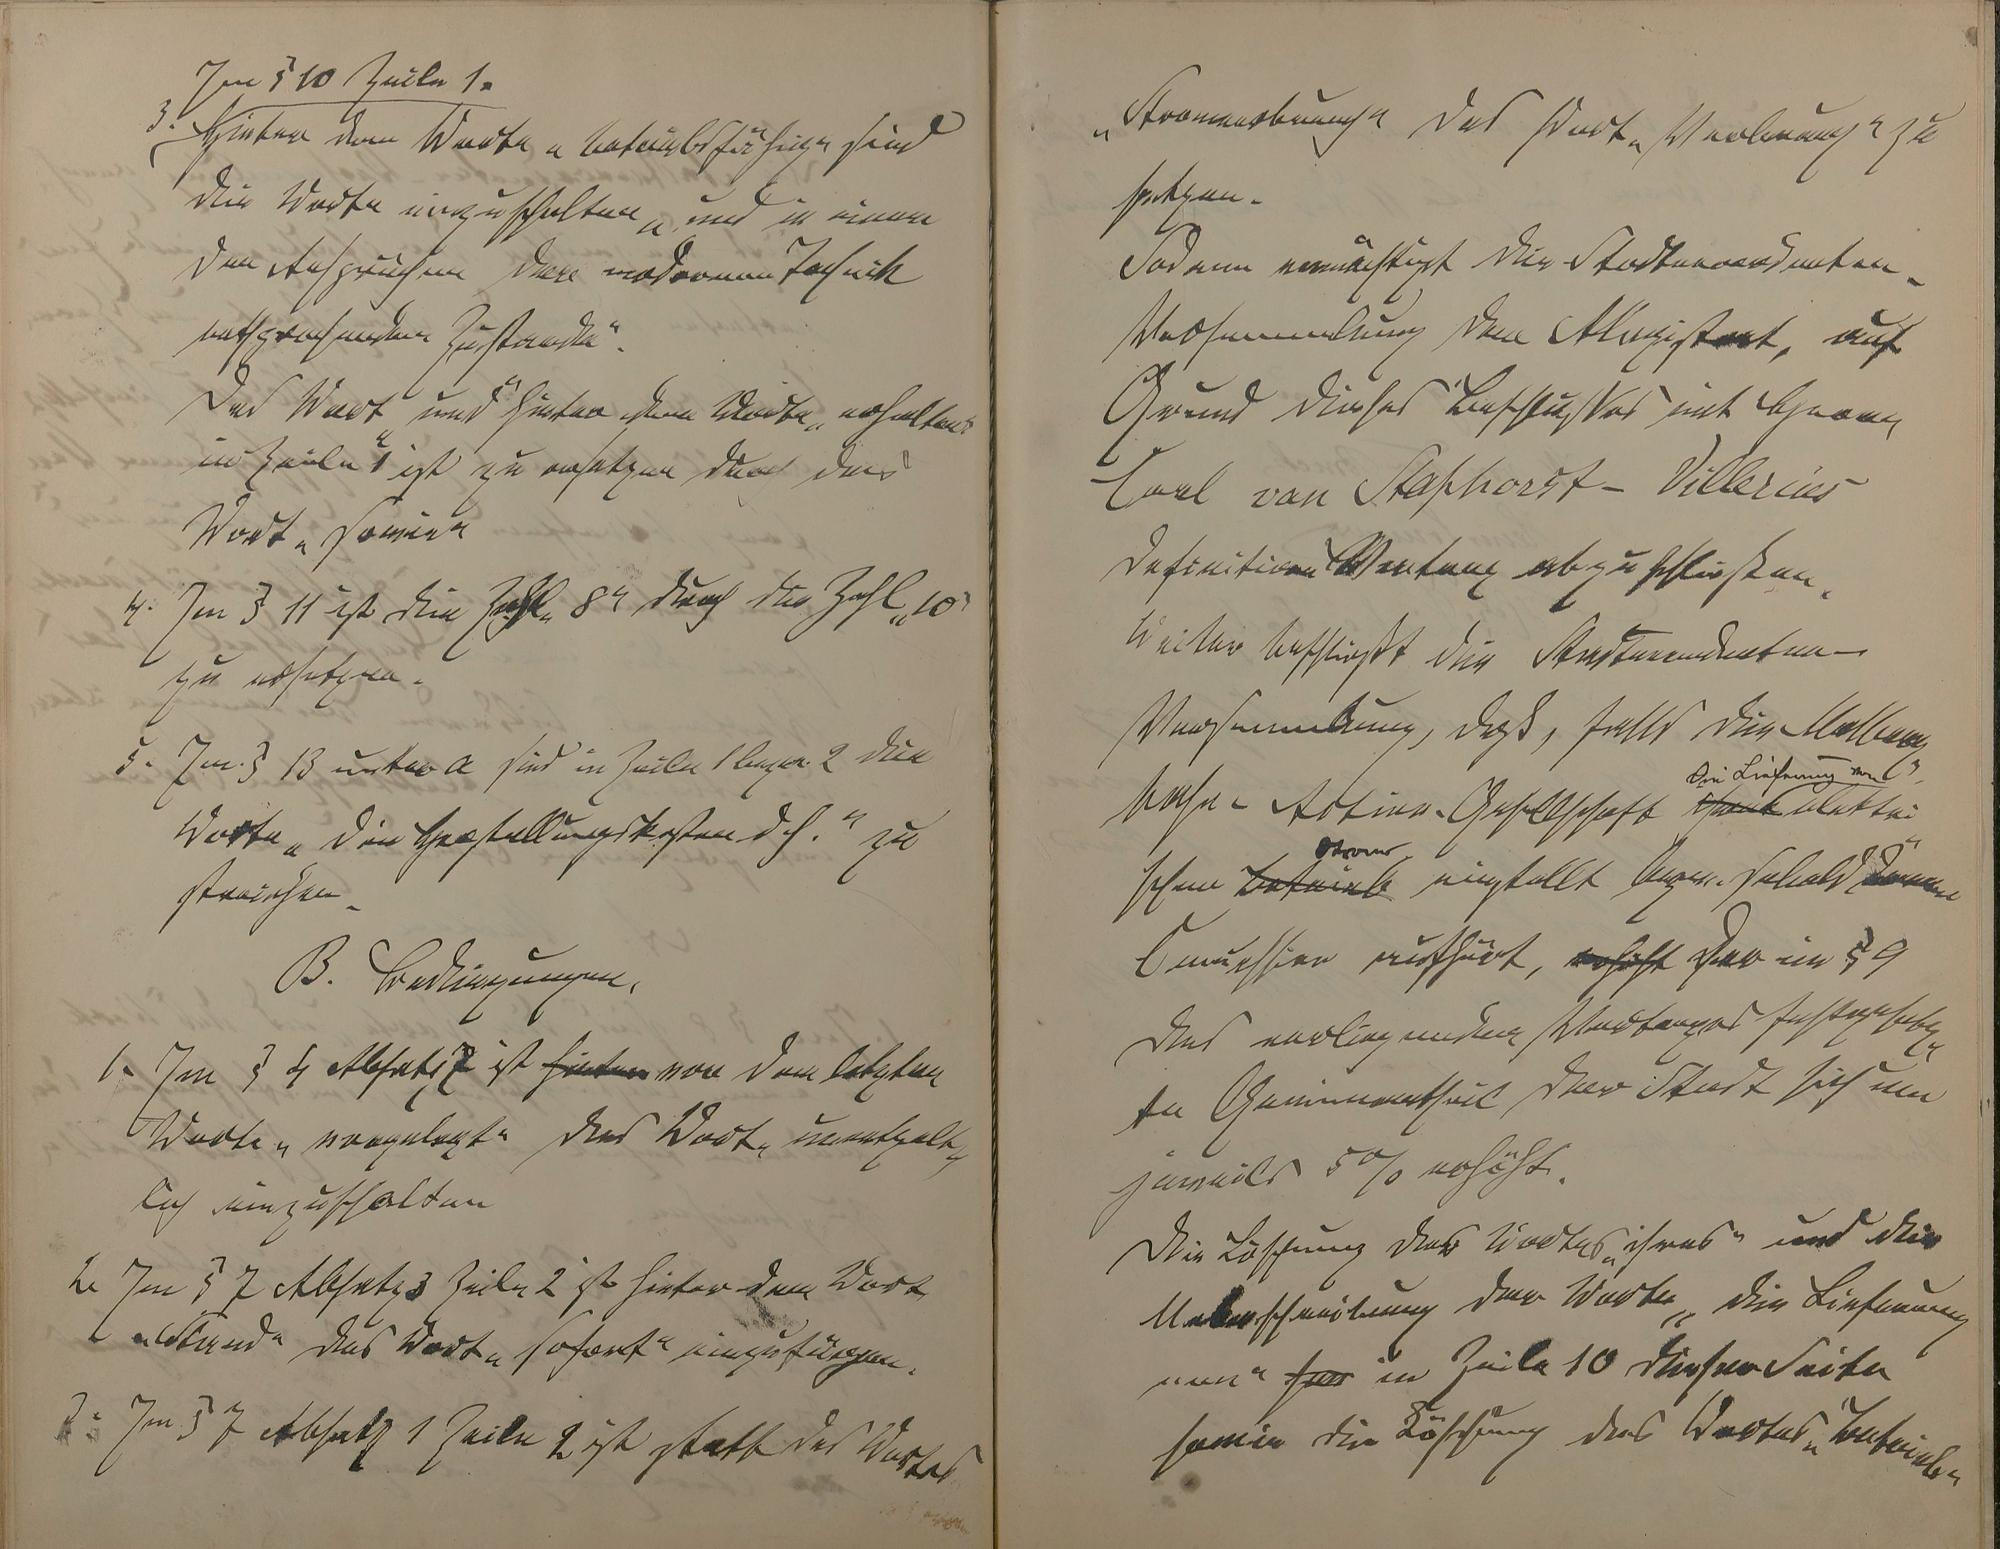 Im § 10 Zeile 1.
3. Hinter dem Worte „betriebsfähig“ sind
die Worte einzuschalten „und in einem
den Ansprüchen der modernen Technik
entsprechenden Zustande“.
Das Wort „und“ hinter dem Worte „erhalten“
in Zeile 1 ist zu ersetzen durch das
Wort „sowie“
4. Im § 11 ist die Zahl „8“ durch die Zahl „10“
zu ersetzen.
5. Im § 13 unter a sind in Zeile 1 bezw. 2 die
Worte „die Herstellungskosten d. h.“ zu
streichen.
B. Bedingungen.
1. Im § 4 Absatz 7 ist hinter vor dem letzten
Worte „vorgelegt“ das Wort „unentgelt-
lich“ einzuschalten
2. Im § 7 Absatz 3 Zeile 2 ist hinter dem Wort
„Stand“ das Wort „sofort“ einzufügen.
3. Im § 7 Absatz 1 Zeile 2 ist statt des Wortes
„ das Wort „ zu
setzen.
Sodann ermächtigt die Stadtverordneten-
Versammlung den Magistrat, auf
Grund dieses Beschlusses mit Herrn
Carl van Staphorst-Villerius
definitiven Vertrag abzuschließen.
Weiter beschließt die Stadtverordneten-
Versammlung, daß, falls die Malberg-
die Lieferung von
bahn-Actien-Gesellschaft ihren elektri-
Strom
schen Betrieb einstellt bezw. sobald deren
Concession aufhört, erhöht der in § 9
des vorliegenden Vertrages festgesetz-
te Gewinnantheil der Stadt sich um
jeweils 5 % erhöht.
Die Löschung des Wortes „ihren“ und die
Ueberschreibung der Worte „die Lieferung
von“ in Zeile 10 dieser Seite
sowie die Löschung des Wortes „Betrieb“